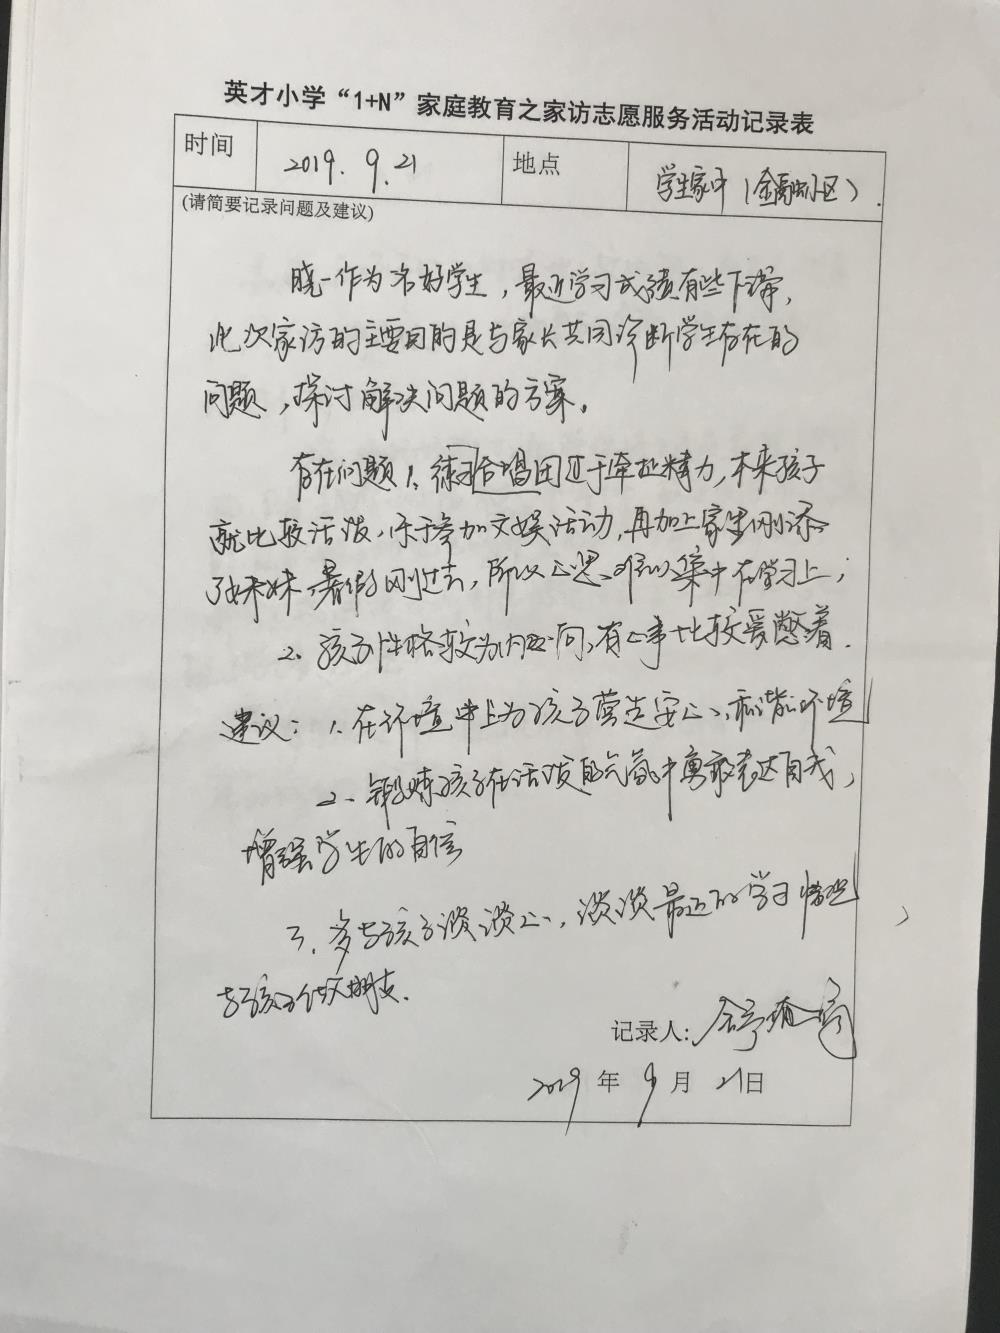 英才小学“1+N”家庭教育之家访志愿服务活动记录表
时间 2019.9.21 地点 学生家中（金融小区）.
(请简要记录问题及建议)
晓一作为名好学生，最近学习成绩有些下滑，
此次家访的主要目的是与家长共同诊断学生存在的
问题，探讨解决问题的方案。
存在问题1、练习合唱团过于牵扯精力，本来孩子
就比较活泼，乐于参加文娱活动，再加上家里刚添
了妹妹，暑假刚过去，所以心思难以集中在学习上；
2、孩子性格较为内向，有心事比较爱憋着.
建议：1、在环境上为孩子营造安心、和谐环境
2、锻炼孩子在活泼的氛围中勇敢表达自我，
增强学生的自信
3、多与孩子谈谈心，谈谈最近的学习情况，
与孩子做朋友.
记录人: 舒
2019 年 9 月 21日